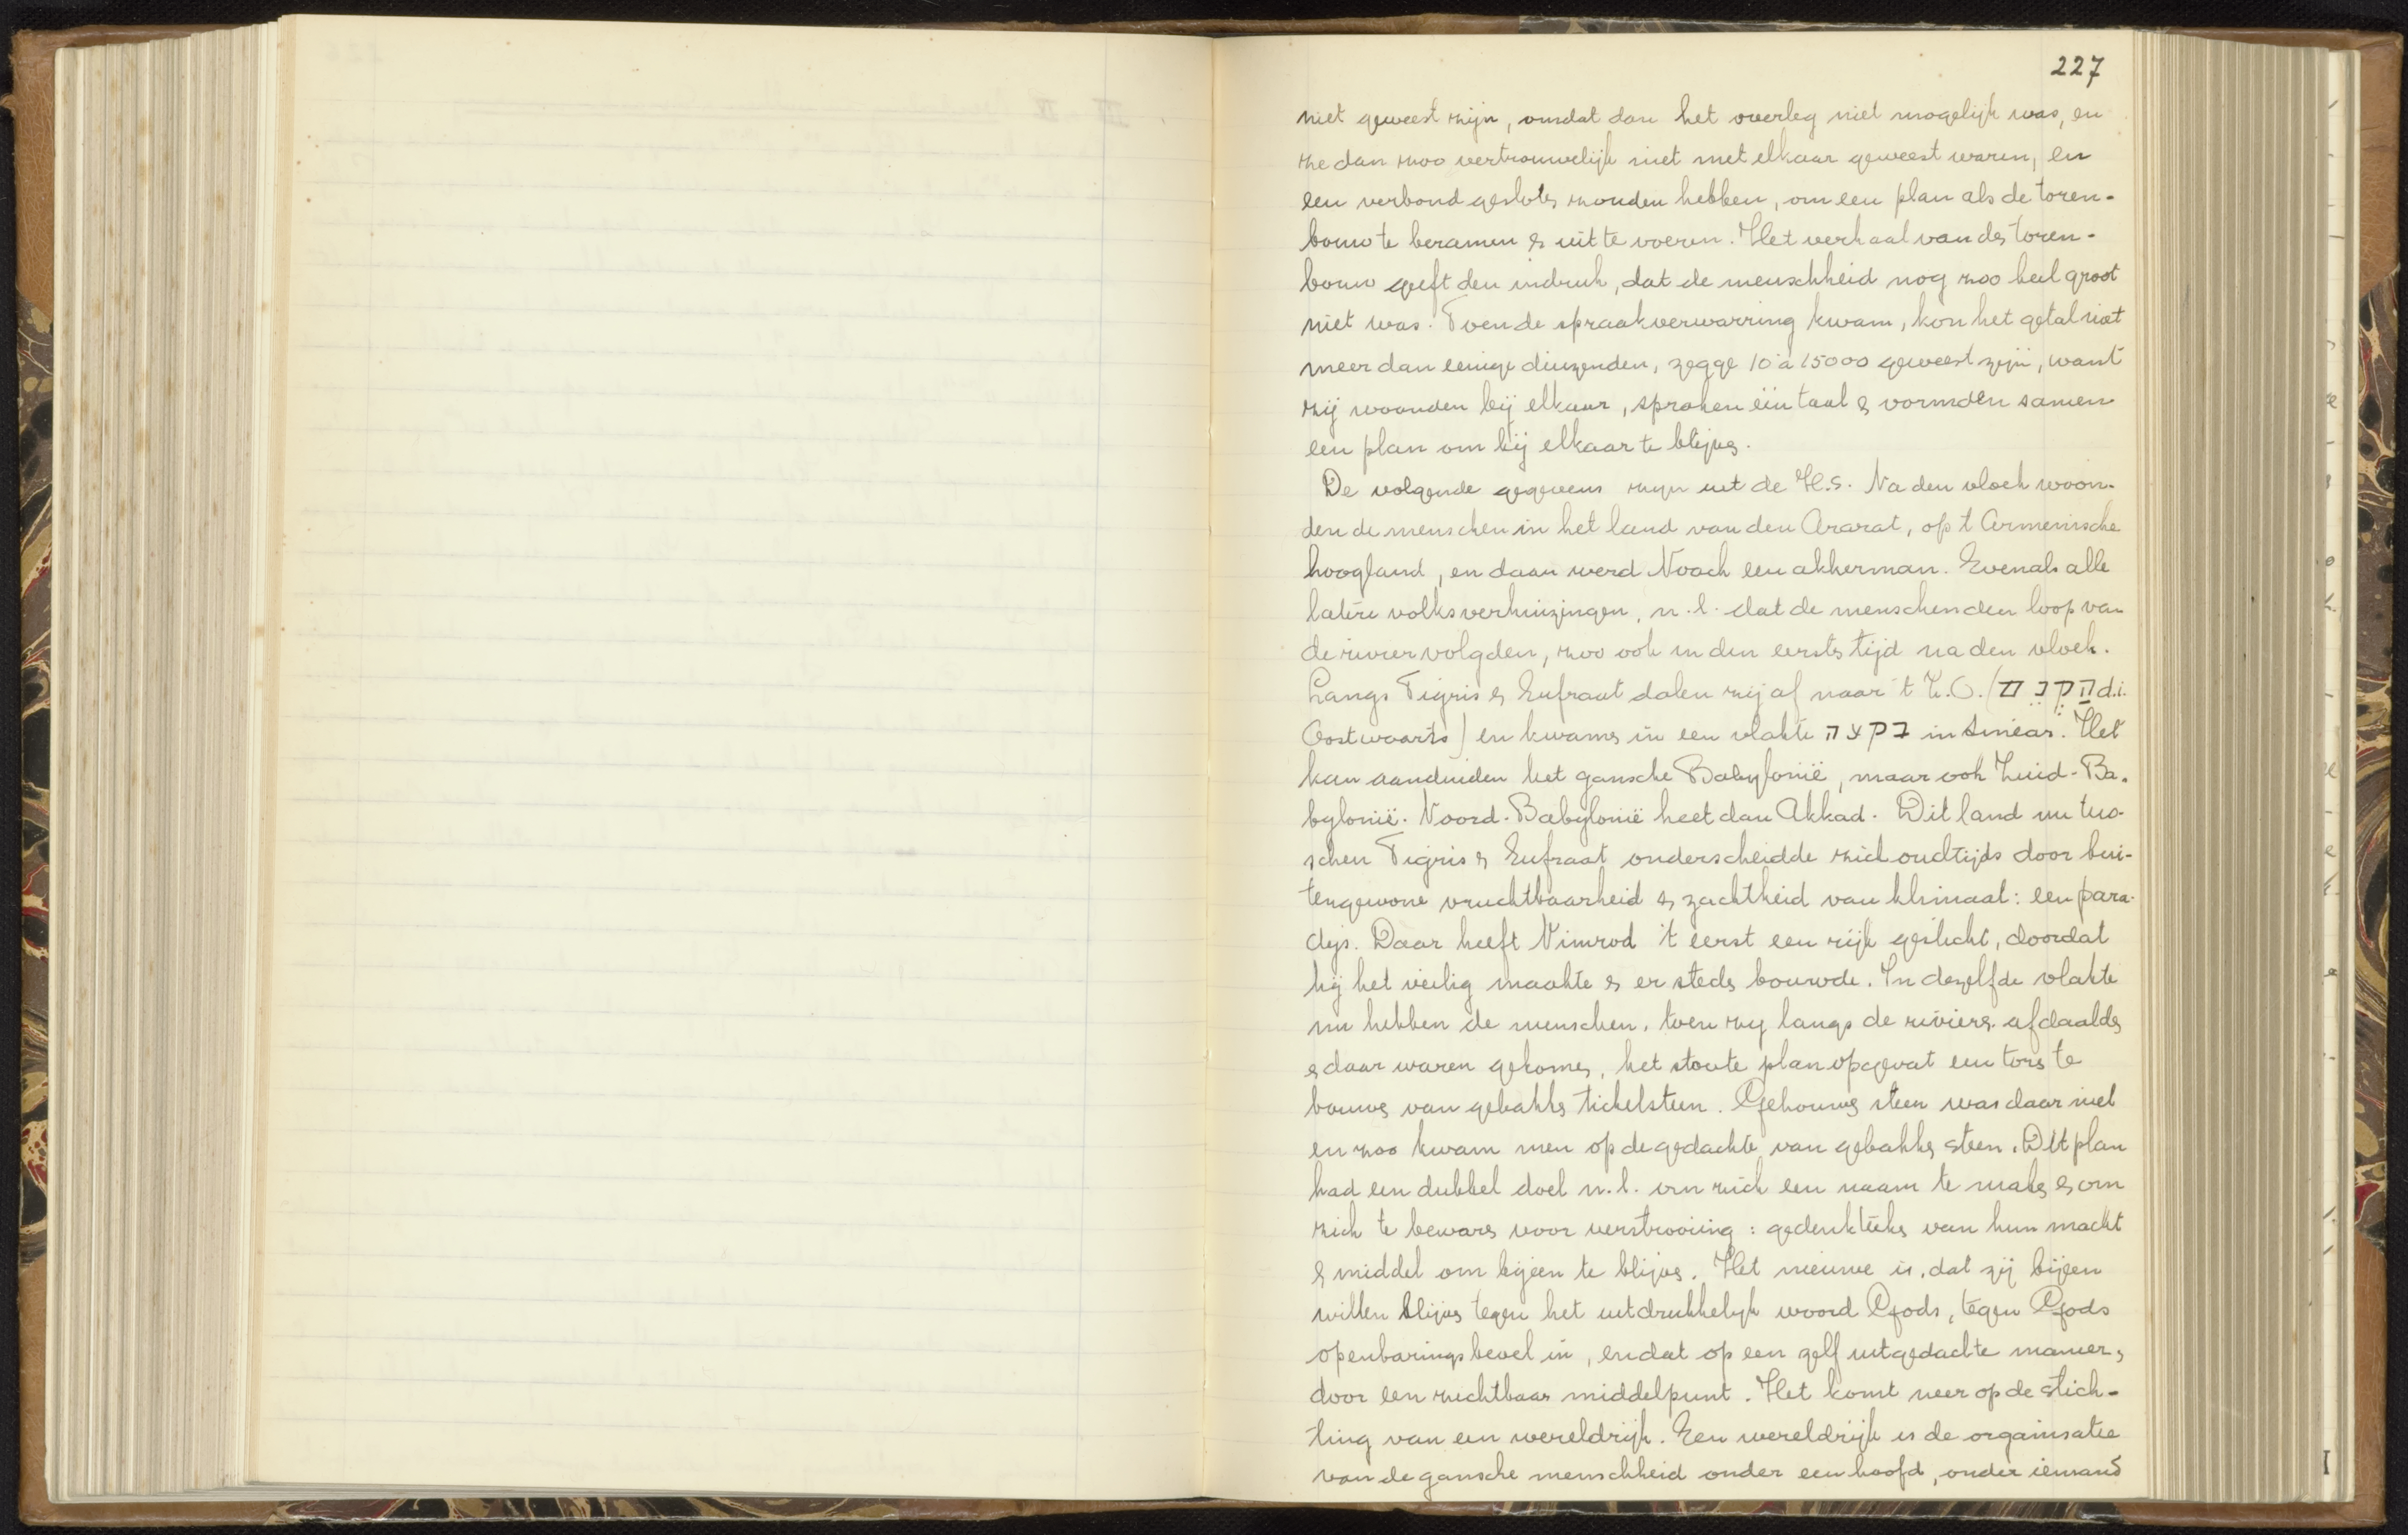 227
niet geweest zijn, omdat dan het overleg niet mogelijk was, en
ze dan zoo vertrouwelijk niet met elkaar geweest waren, en
een verbond gesloten zouden hebben, om een plan als de toren-
bouw te beramen & uit te voeren. Het verhaal van den toren-
bouw geeft den indruk, dat de menschheid nog zoo heel groot
niet was. Toen de spraakverwarring kwam, kon het getal niet
meer dan eenige duizenden, zegge 10 à 15000 geweest zijn, want
zij woonden bij elkaar, spraken één taal & vormden samen
een plan om bij elkaar te blijven.
De volgende gegevens zijn uit de H.S. Na den vloed woon-
den de menschen in het land van den Ararat, op 't Armenische
hoogland, en daar werd Noach een akkerman. Evenals alle
latere volksverhuizingen, n.l. dat de menschen den loop van
de rivier volgden, zoo ook in den eersten tijd na den vloed.
Langs Tigris & Eufraat dalen zij af naar 't Z.O. ( d.i.
Oostwaarts) en kwamen in een vlakte בקעה in Sinear. Het
kan aanduiden het gansche Babylonië, maar ook Zuid-Ba-
bylonië. Noord-Babylonië heet dan Akkad. Dit land nu tus-
schen Tigris & Eufraat onderscheidde zich oudtijds door bui-
tengewone vruchtbaarheid & zachtheid van klimaat: een para-
dijs. Daar heeft Nimrod 't eerst een rijk gesticht, doordat
hij het veilig maakte & er steden bouwde. In dezelfde vlakte
nu hebben de menschen, toen zij langs de rivieren afdaalden
& daar waren gekomen, het stoute plan opgevat een toren te
bouwen van gebakken tichelsteen. Gehouwen steen was daar niet
en zoo kwam men op de gedachte van gebakken steen. Dit plan
had een dubbel doel n.l. om zich een naam te maken & om
zich te bewaren voor verstrooiing: gedenkteeken van hun macht
& middel om bijeen te blijven. Het nieuwe is, dat zij bijeen
willen blijven tegen het uitdrukkelijk woord Gods, tegen Gods
openbaringsbevel in, en dat op een zelf uitgedachte manier,
door een zichtbaar middelpunt. Het komt neer op de stich-
ting van een wereldrijk. Een wereldrijk is de organisatie
van de gansche menschheid onder een hoofd, onder iemand